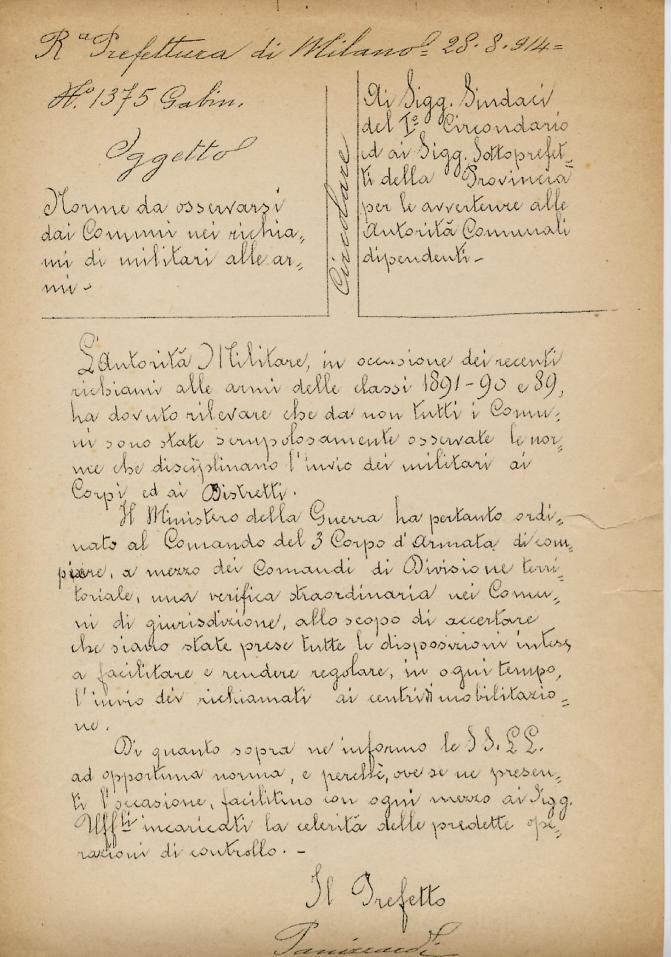 Rª Prefettura di Milano = 28.8.914=
Nº. 1375 Gabin.
Oggetto
Norme da osservarsi
dai Comuni nei richia=
mi di militari alle ar=
mi-
Circolare
Ai Sigg. Sindaci
del Iº Circondario
ed ai Sigg. Sottoprefet=
ti della Provincia
per le avvertenze alle
Autorità Comunali
dipendenti-
L'Autorità Militare, in occasione dei recenti
richiami alle armi delle classi 1891-90 e 89,
ha dovuto rilevare che da non tutti i Comu=
ni sono state scrupolosamente osservate le nor=
me che disciplinano l'invio dei militari ai
Corpi ed ai Distretti.
Il Ministero della Guerra ha pertanto ordi=
nato al Comando del 3 Corpo d'Armata di com=
piere, a mezzo dei Comandi di Divisione terri=
toriale, una verifica straordinaria nei Comu=
ni di giurisdizione, allo scopo di accertare
che siano state prese tutte le disposizioni intese
a facilitare e rendere regolare, in ogni tempo,
l'invio dei richiamati ai centri di mobilitazio=
ne.
Di quanto sopra ne informo le SS.LL.
ad opportuna norma, e perchè, ove se ne presen=
ti l'occasione, facilitino con ogni mezzo ai Sigg.
Uffli incaricati la celerità delle predette ope=
razioni di controllo. -
Il Prefetto
Panizzardi